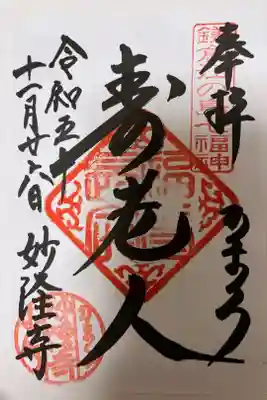 奉拝
鎌倉江の島七福神
かまくら
寿老人
令和五年
十一月廿六日 妙隆寺